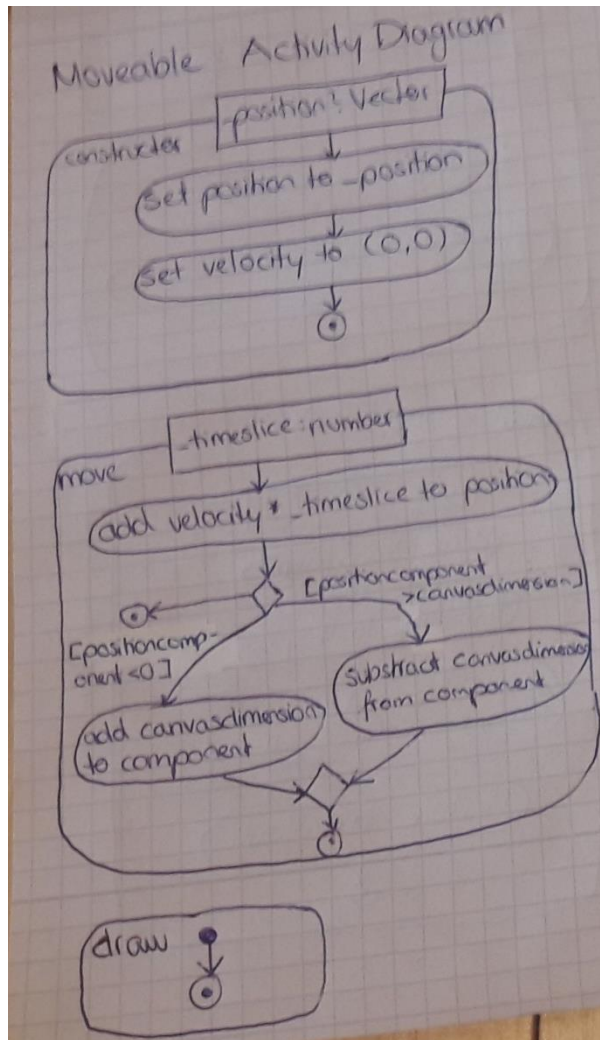 Moveable Activity Diagram
_position: Vector
constructer
set position to _position
set velocity to (0,0)
_timeslice: number
move
add velocity * _timeslice to position
[positioncomponent
>canvasdimension]
[positioncomp-
onent<0]
substract canvasdimension
from component
add canvasdimension
to component
draw